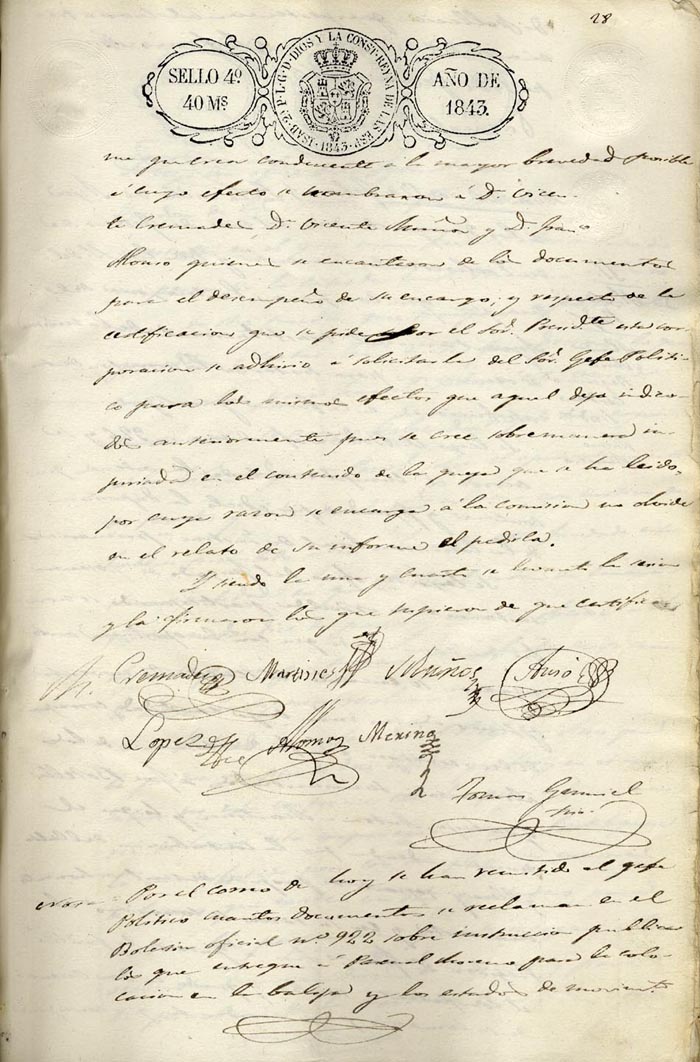 28
SELLO 4º
40 Ms
ISAB. 2ª P. L. G. D. DIOS Y LA CONST. REYNA DE LAS ESP.
1843.
AÑO DE
1843.
me que crean conducente a la mayor brevedad posible
á cuyo efecto se nombraron á Dn. Vicen-
te Cremades Dn. Vicente Muñoz y D. Franco
Alonso quienes se encautaron de los documentos
para el desempeño de su encargo; y respecto de la
certificacion que se pide por el Sor. Presidte esta cor-
poracion se adhirio á solicitarla del Sor. Gefe Politi-
co para los mismos efectos que aquel deja indica-
dos anteriormente pues se cree sobremanera in-
juriada en el contenido de la queja que se ha leido,
por cuya razon se encarga á la comision no olvide
en el relato de su informe el pedirla.
Y siendo la una y cuarto se levantó la sesion
y la firmaron los que supieron de que certifico
Cremades Martines Muños
Lopez Merino
Tomas
Nota Por el correo de hoy se han remitido al gefe
Politico cuantos documentos se reclaman en el
Boletin oficial nº 922 sobre instruccion publica
los que entregue á Pascual Moreno para la colo-
cacion en la balija y los estados de